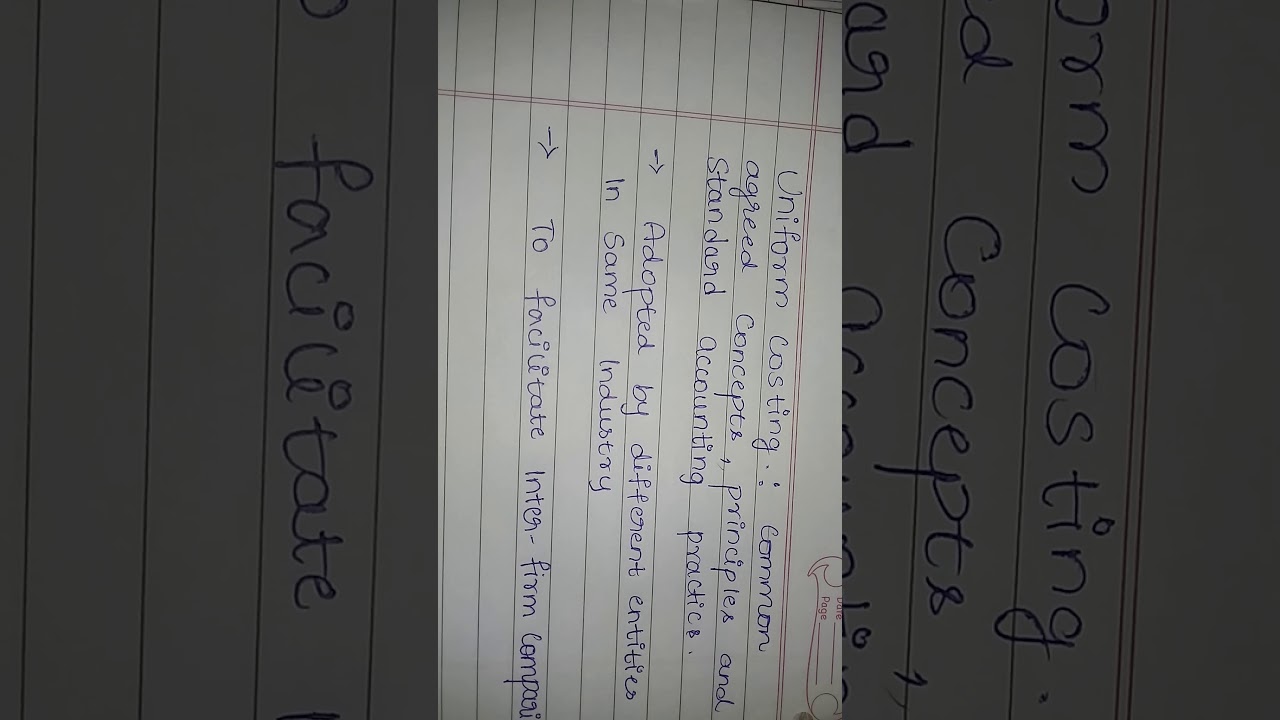 Date
Page
Uniform Costing :- Common
agreed Concepts, principles and
Standard accounting practics.
→ Adopted by different entities
In Same Industry
→ To facilitate Inter-firm Compari